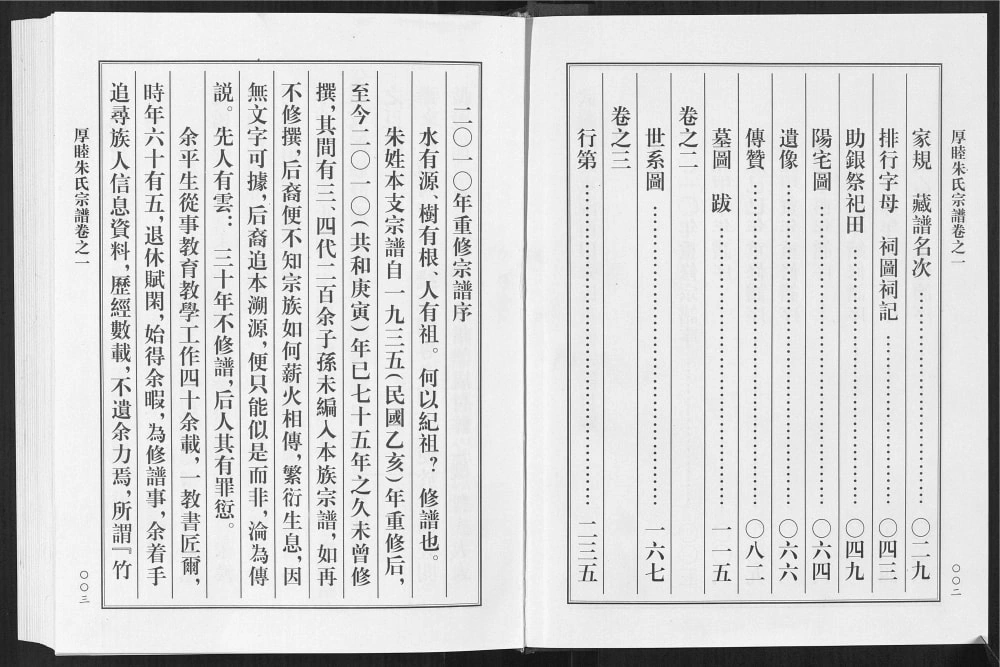 厚睦朱氏宗譜卷之一
家規　藏譜名次……〇二九
排行字母　祠圖祠記……〇四三
助銀祭祀田……〇四九
陽宅圖……〇六四
遺像……〇六六
傳贊……〇八二
墓圖　跋……一一五
卷之二
世系圖……一六七
卷之三
行第……二三五
〇〇二
二〇一〇年重修宗譜序
水有源、樹有根、人有祖。何以紀祖？修譜也。
朱姓本支宗譜自一九三五(民國乙亥)年重修后，
至今二〇一〇(共和庚寅)年已七十五年之久未曾修
撰，其間有三、四代二百余子孫未編入本族宗譜，如再
不修撰，后裔便不知宗族如何薪火相傳，繁衍生息，因
無文字可據，后裔追本溯源，便只能似是而非，淪為傳
説。先人有雲：三十年不修譜，后人其有罪愆。
余平生從事教育教學工作四十余載，一教書匠爾，
時年六十有五，退休賦閑，始得余暇，為修譜事，余着手
追尋族人信息資料，歷經數載，不遺余力焉，所謂『竹
厚睦朱氏宗譜卷之一
〇〇三